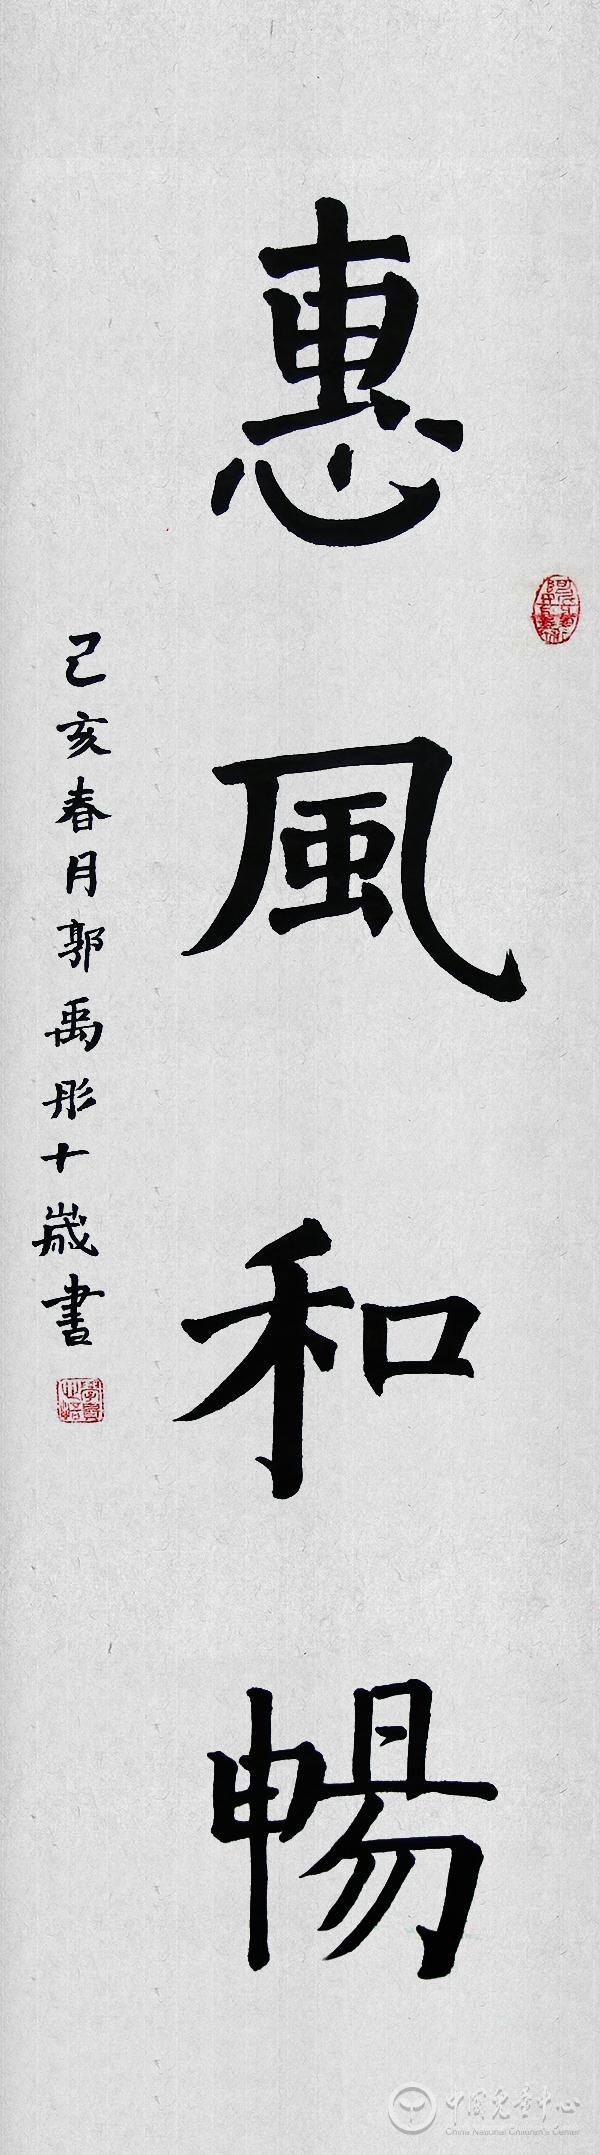 惠風和暢
己亥春月郭禹彤十歲書
中国儿童中心
China National Children's Center